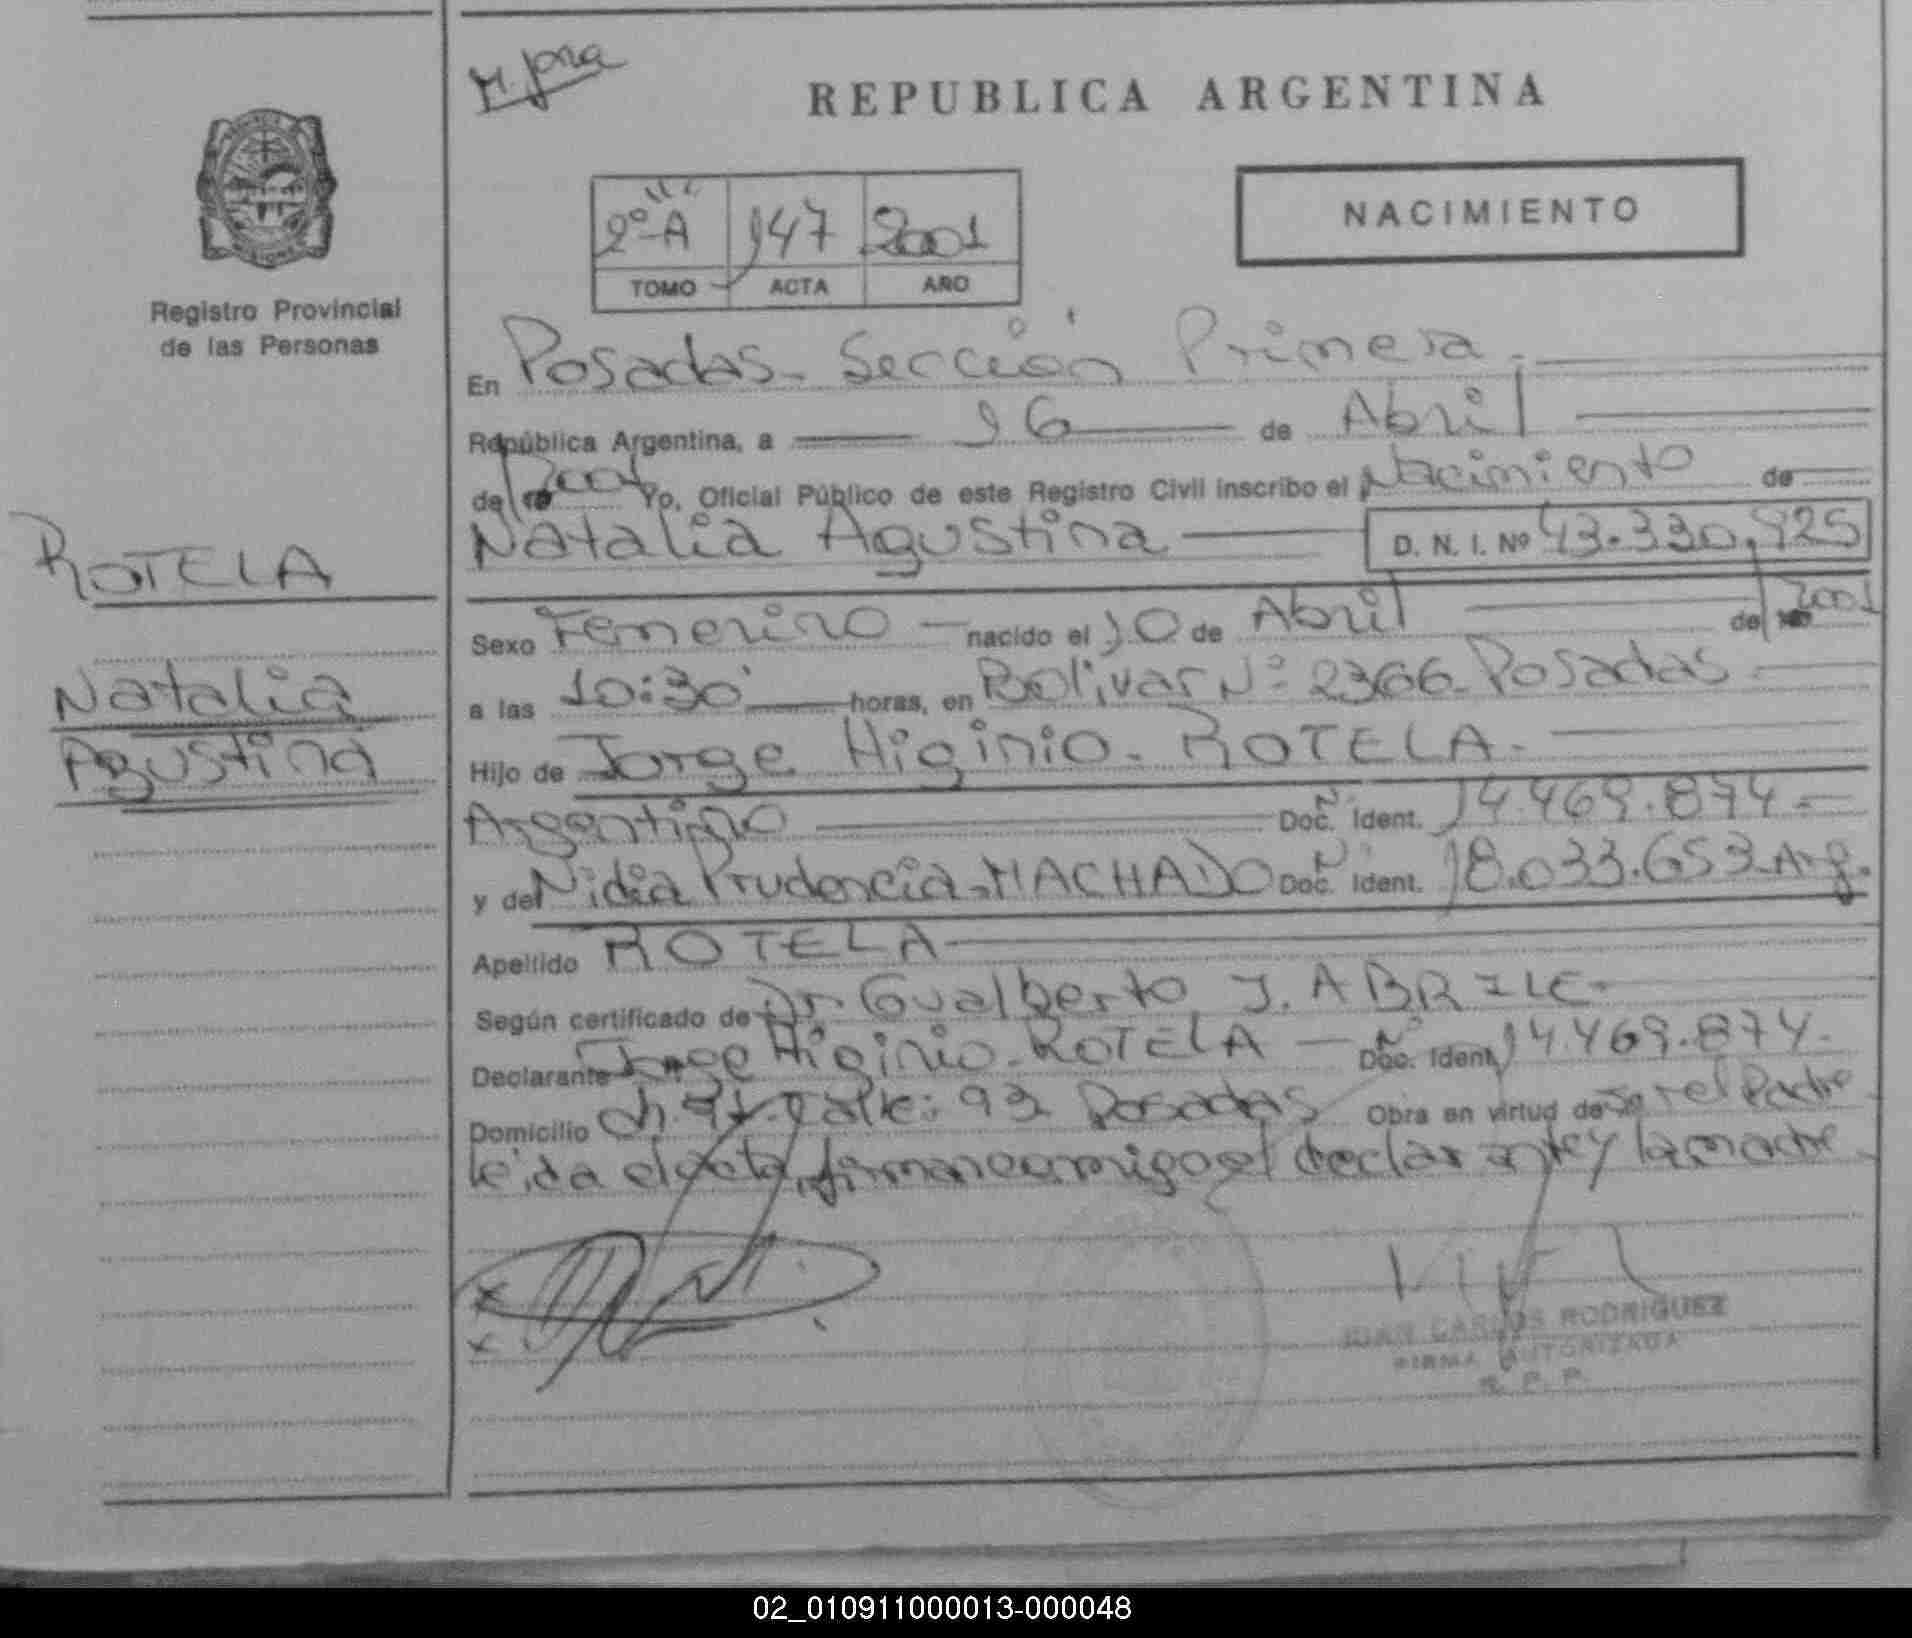 REPUBLICA ARGENTINA
2º-A 147 2001
TOMO ACTA AÑO
NACIMIENTO
Registro Provincial
de las Personas
ROTELA
Natalia
Agustina
En Posadas - Sección Primera.
República Argentina, a 16 de Abril
de 2001 Yo, Oficial Público de este Registro Civil inscribo el Nacimiento de
Natalia Agustina D. N. I. Nº 43.330.925
Sexo Femenino nacido el 10 de Abril de 2001
a las 10:30 horas, en Bolivar Nº 2366 - Posadas
Hijo de Jorge Higinio - ROTELA -
Argentino Doc. Ident. 14.469.874 -
y de Nidia Prudencia - MACHADO Doc. Ident. 18.033.653 - Arg.
Apellido ROTELA
Según certificado de Dr. Gualberto J. ABRILE -
Declarante Jorge Higinio - ROTELA - Doc. Ident. 14.469.874 -
Domicilio Ch. Calle: 93 Posadas Obra en virtud de ser el Padre
leida el acta, firman conmigo el declarante y la madre
JUAN CARLOS RODRIGUEZ
FIRMA AUTORIZADA
R. P. P.
02_010911000013-000048